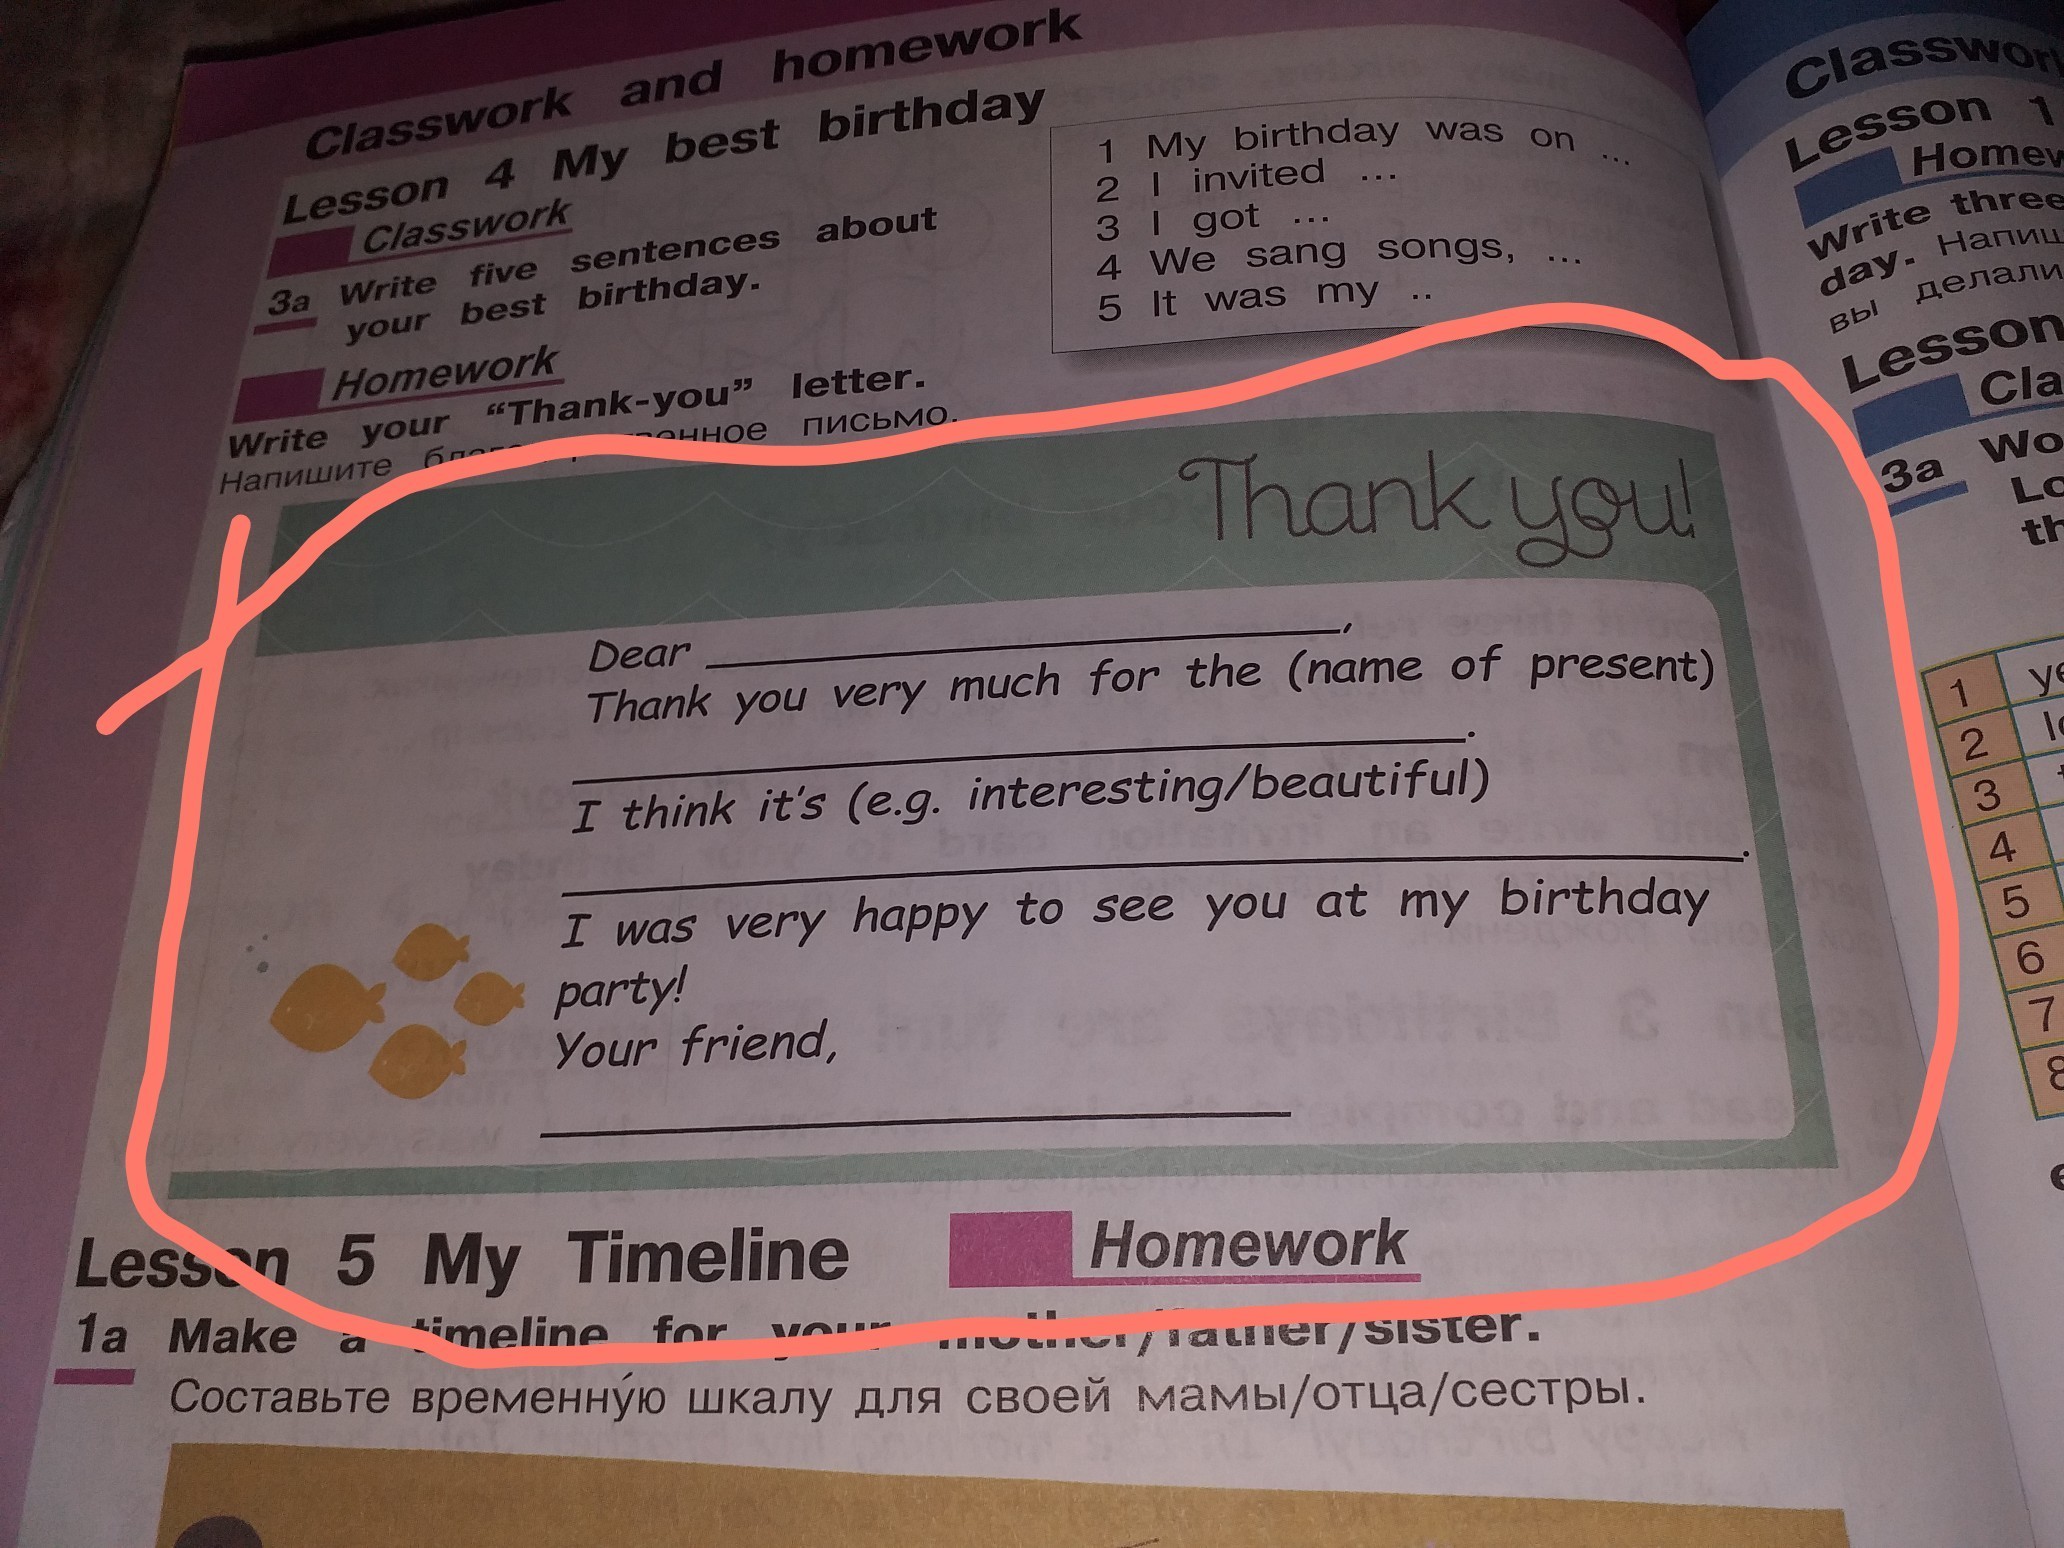 Classwork and homework
Lesson 4 My best birthday
Classwork
3a Write five sentences about
your best birthday.
1 My birthday was on ...
2 I invited ...
3 I got ...
4 We sang songs, ...
5 It was my ..
Homework
Write your “Thank-you” letter.
Напишите письмо.
Thank you!
Dear ,
Thank you very much for the (name of present)
.
I think it's (e.g. interesting/beautiful)
.
I was very happy to see you at my birthday
party!
Your friend,
Lesson 5 My Timeline
Homework
1a Make a timeline for your mother/father/sister.
Составьте временну́ю шкалу для своей мамы/отца/сестры.
Lesson 1
Write three
day. 
вы делали
Lesson
3a Wo
1
2
3
4
5
6
7
8